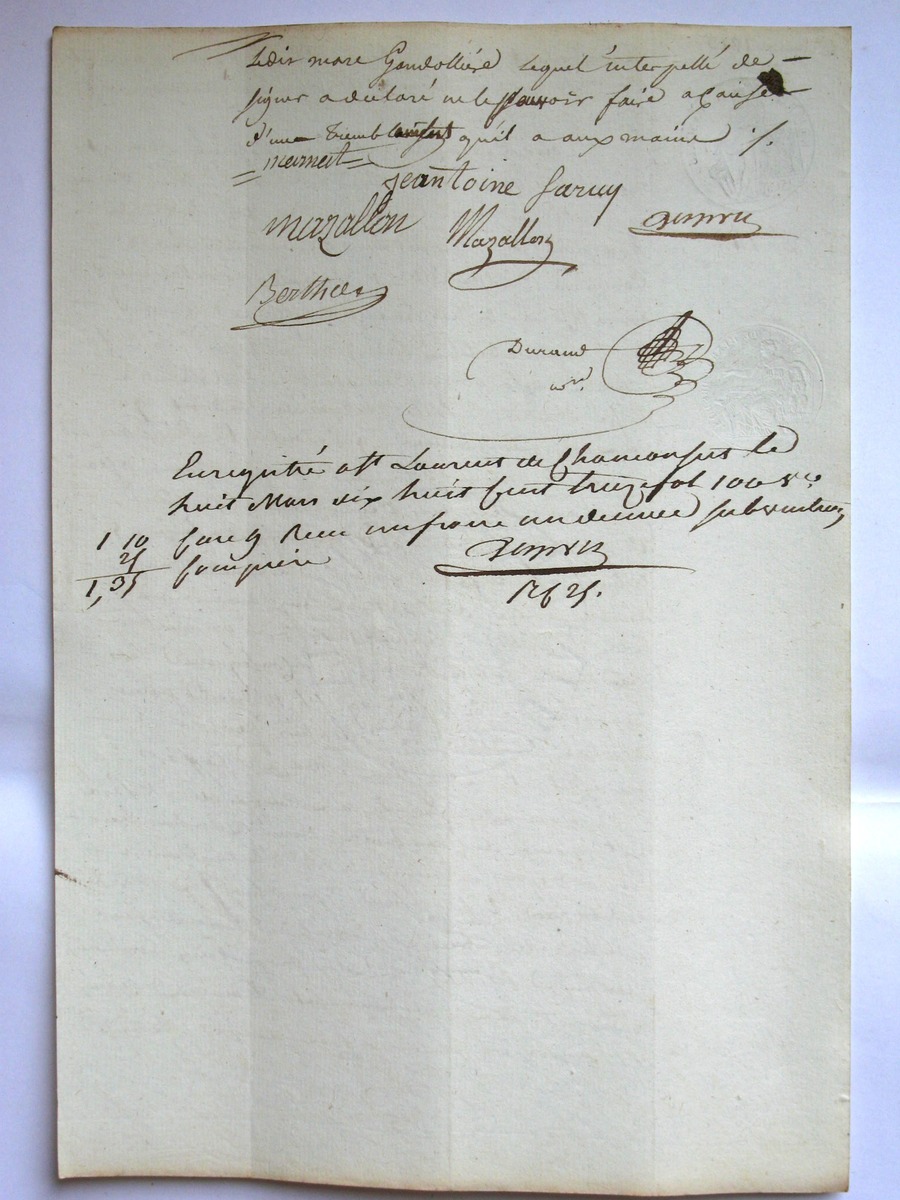 Ledit marc Gondollière Lequel interpellé de
signer a déclaré ne le pouvoir faire a Cause
d'un tremblement qu'il a aux mains ./.
mamat
Jeantoine faruy
mazallon Mazallon
Berthet
Durand
nre.
Enregistré a St Laurent de Chamousset le
huit Mars dix huit Cent treize fol 100 Vo
1 10 Case 9 Reçu un franc un decime subvention
25 Comprise
1,35
1 f 25.